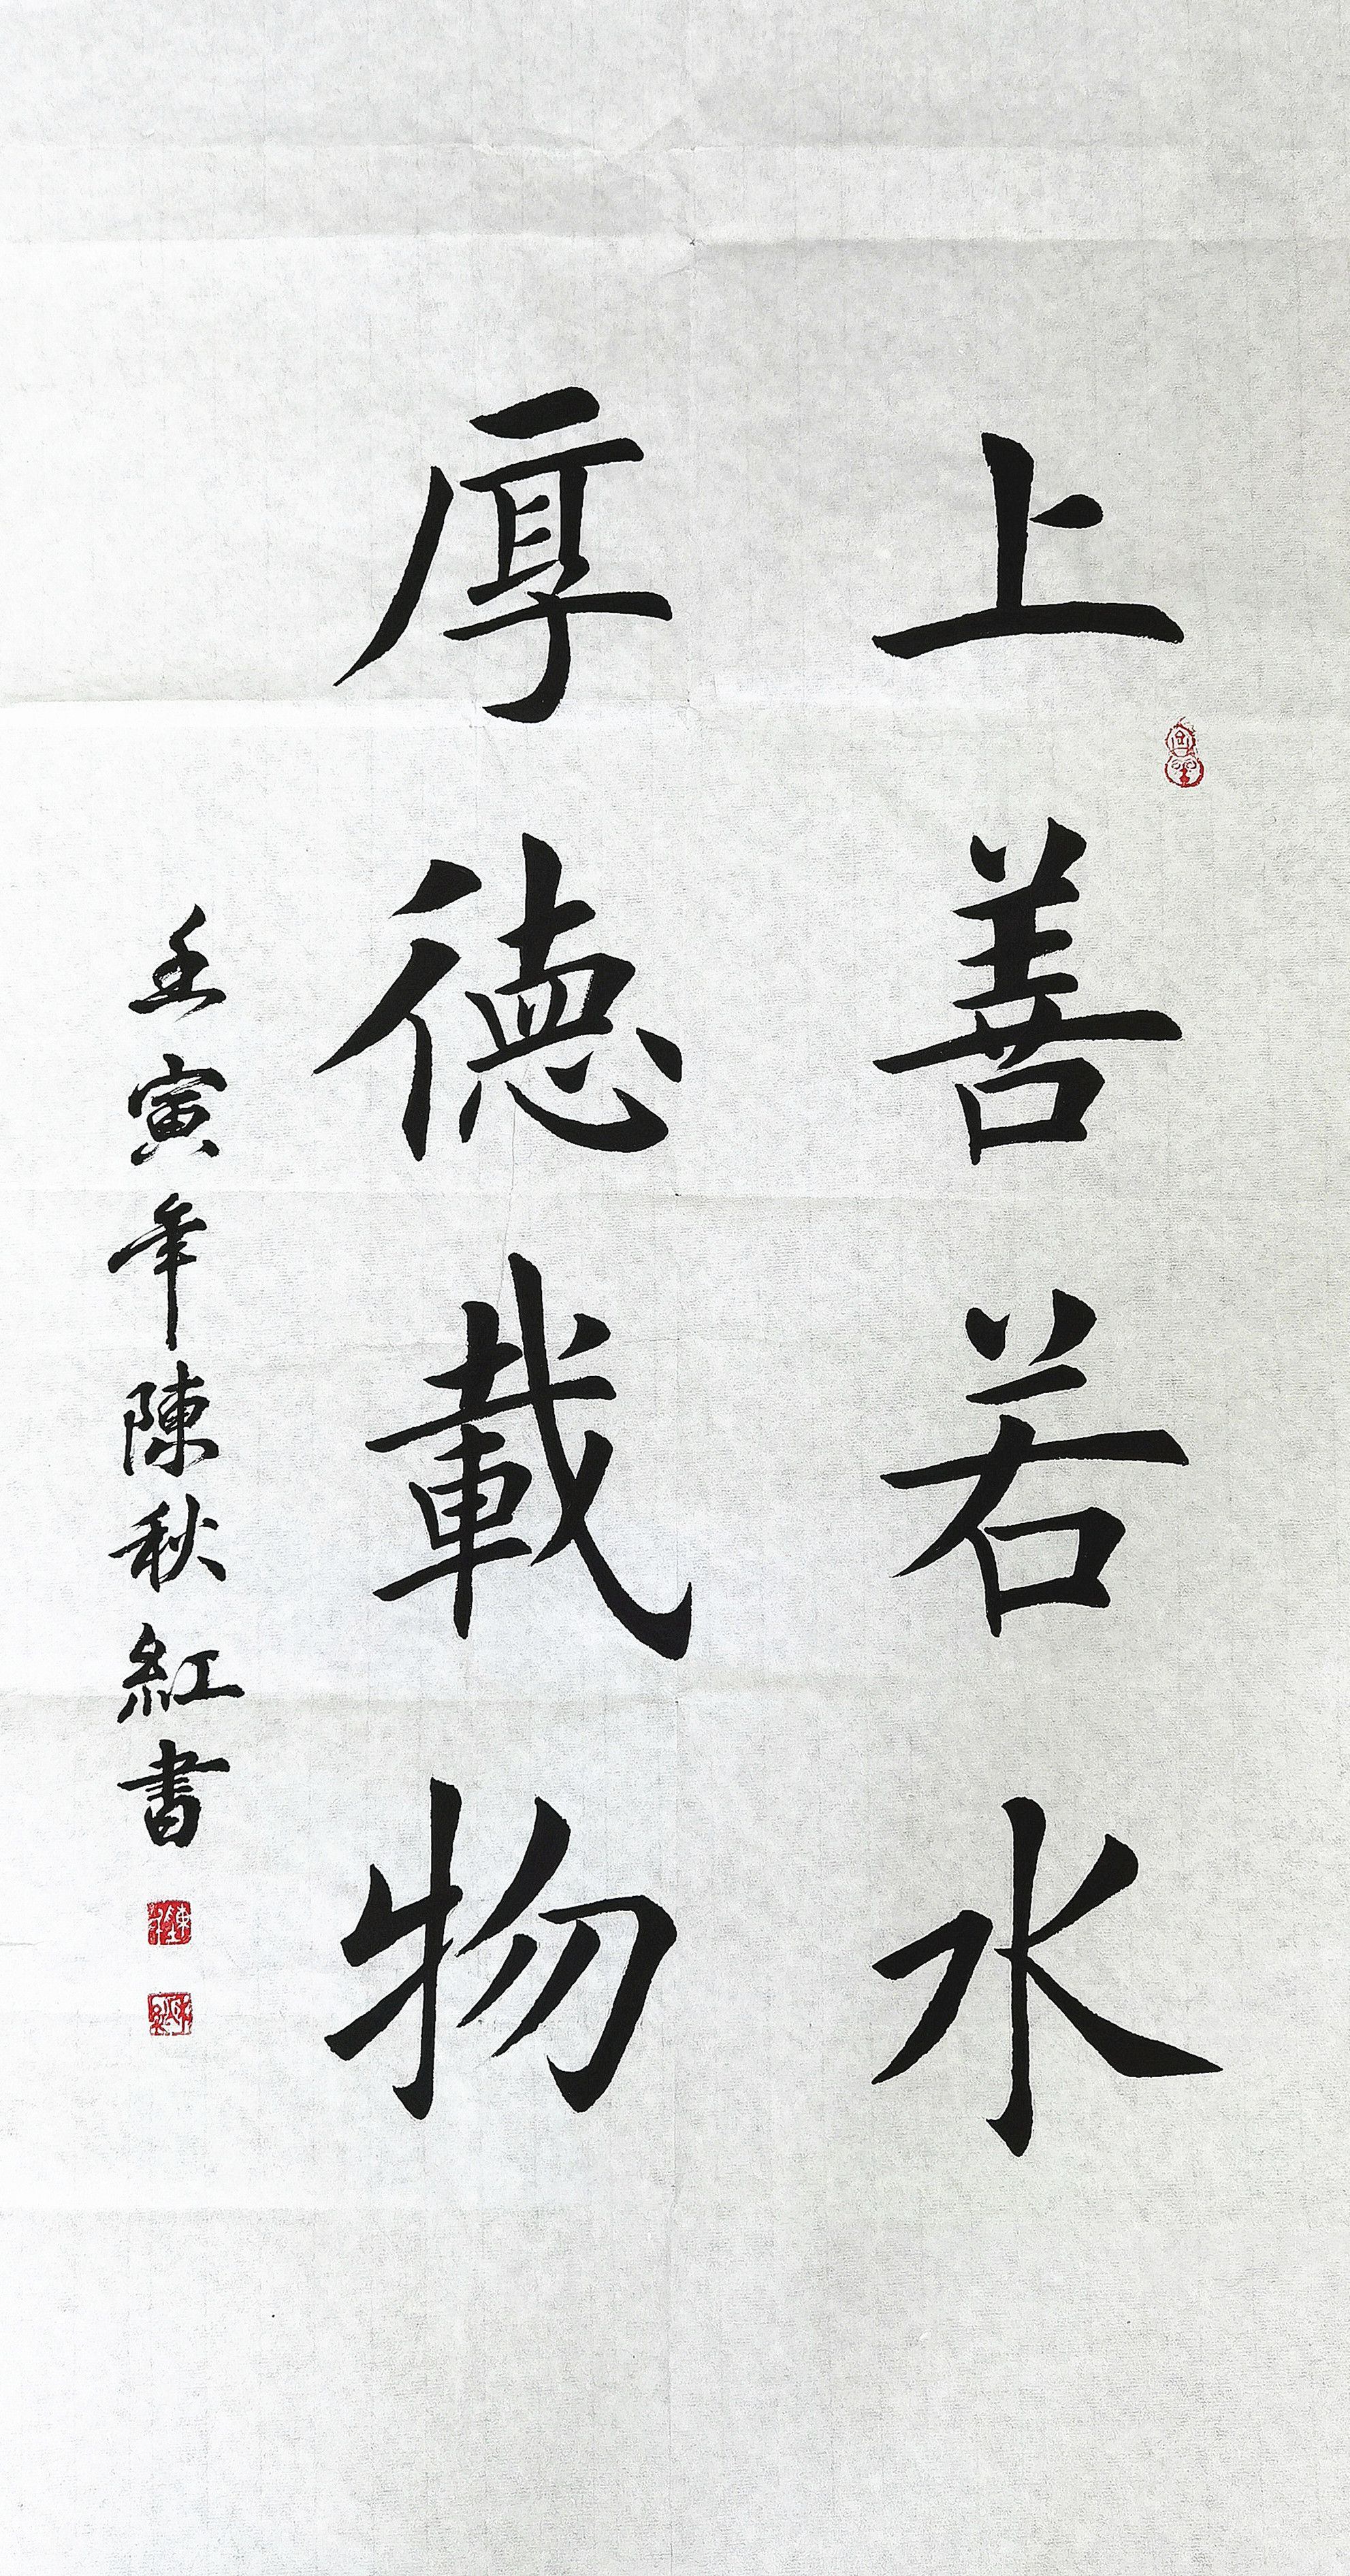 上善若水
厚德載物
壬寅年陳秋紅書